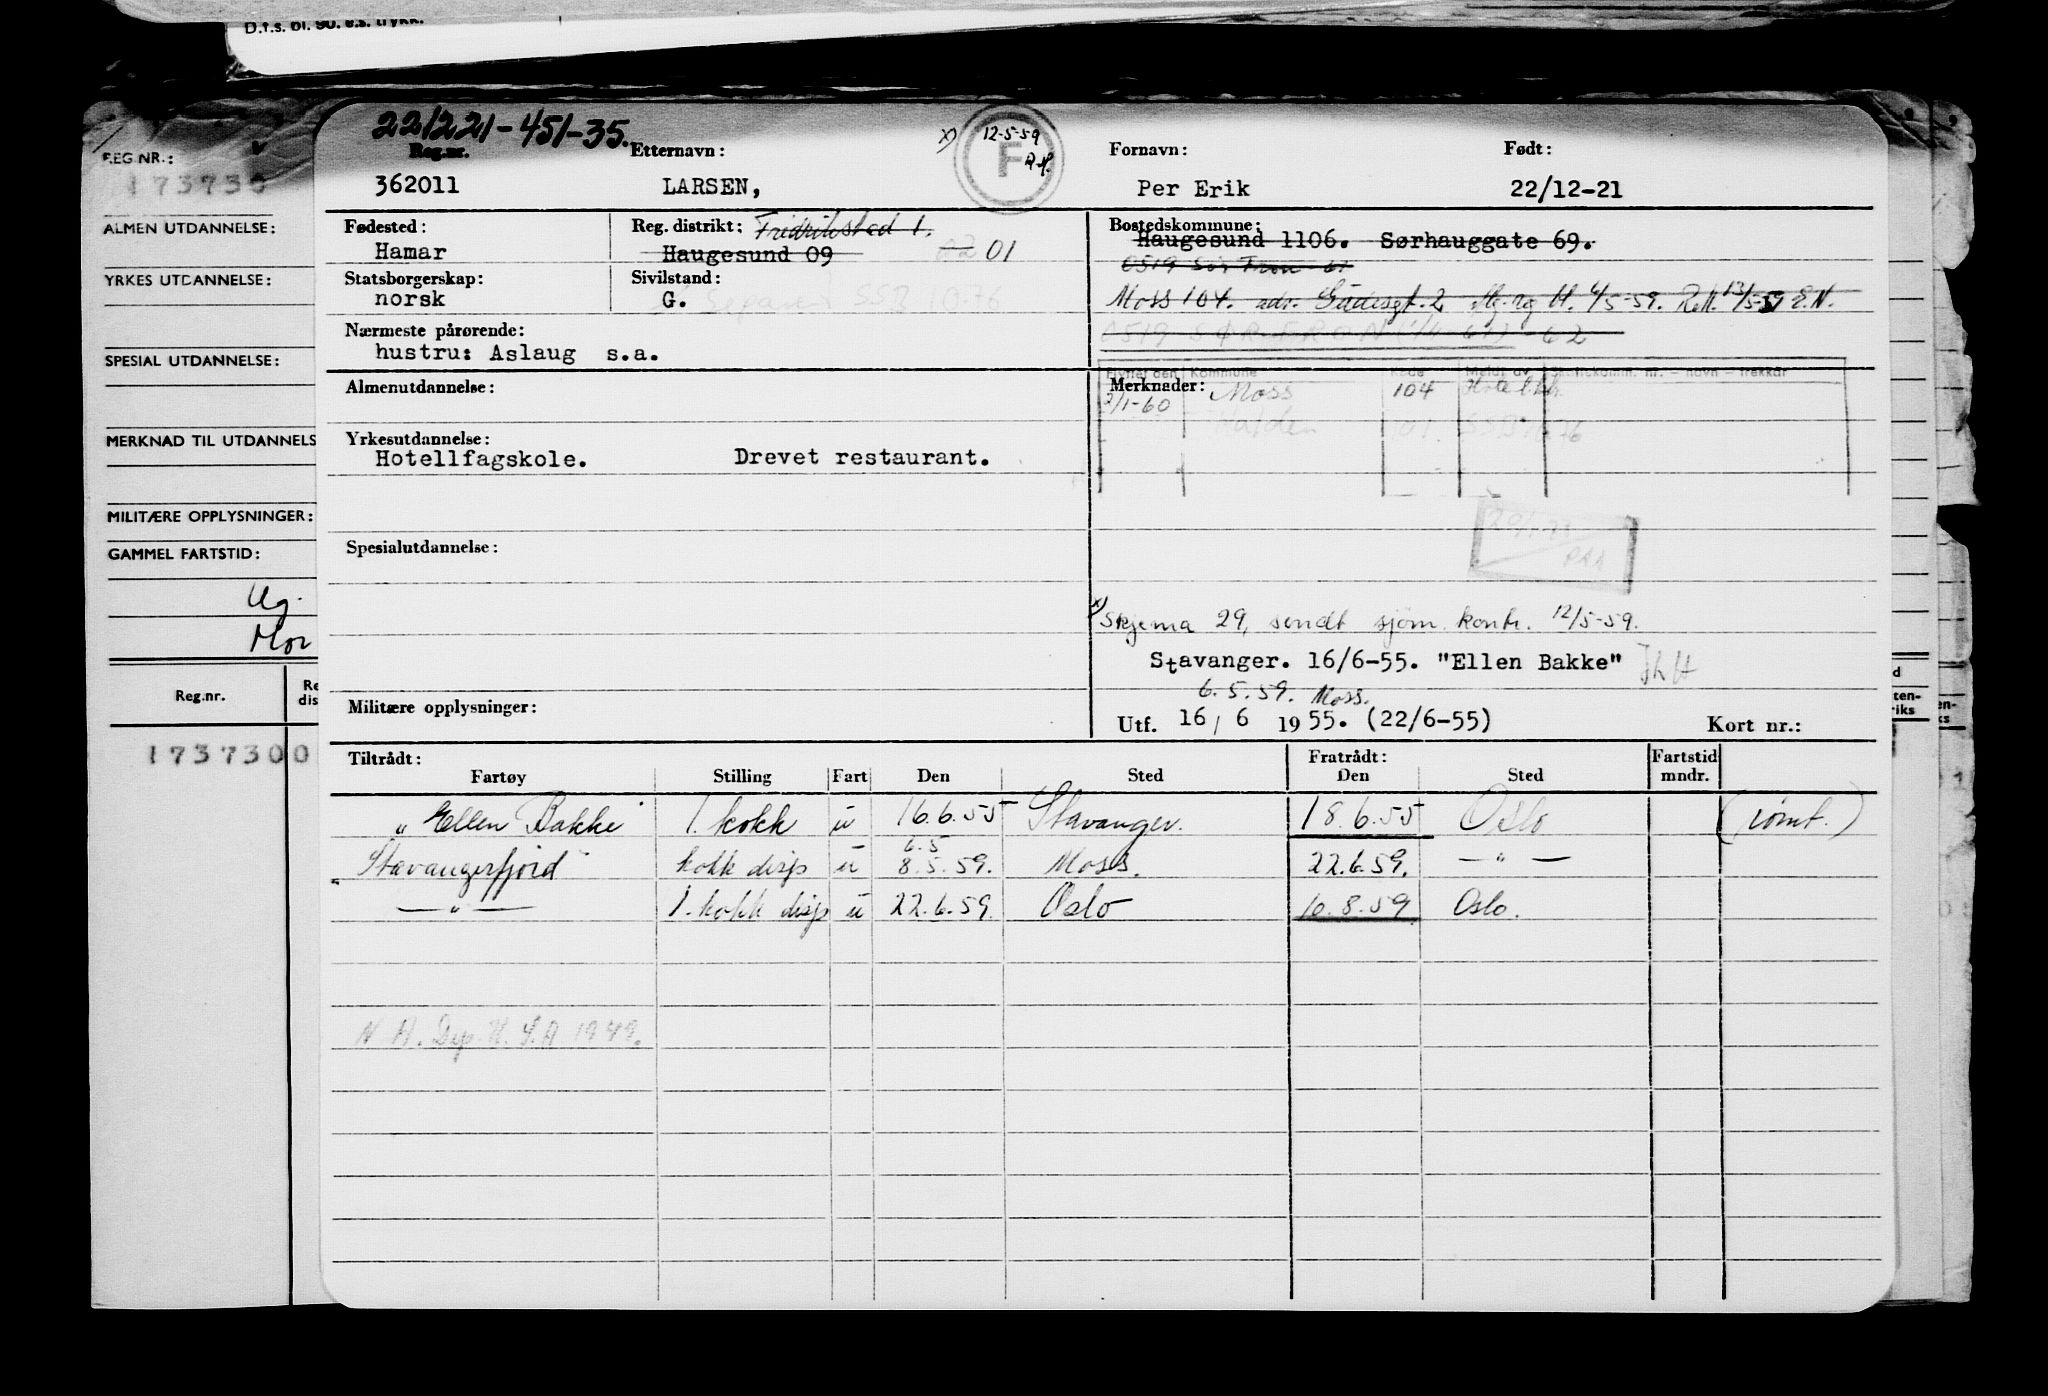 D.f.s. bl. 90. e.s. trykk.
REG.NR.:
173730
ALMEN UTDANNELSE:
YRKES UTDANNELSE:
SPESIAL UTDANNELSE:
MERKNAD TIL UTDANNELS
MILITÆRE OPPLYSNINGER:
GAMMEL FARTSTID:
Reg.nr.
1737300
221221-451-35.
Reg.nr. Etternavn: x) 12-5-59 F Fornavn: Født:
362011 LARSEN, Per Erik 22/12-21
Fødested: Reg. distrikt: Fredrikstad 1. Bostedskommune:
Hamar Haugesund 09 02 01 Haugesund 1106. Sørhauggate 69.
0519 Sør Fron 61
Statsborgerskap: Sivilstand:
norsk G. Moss 104. adr. 2 13/5-59 E.N.
Nærmeste pårørende: 0519 SØR-FRON (1/4-61) - 62
hustru: Aslaug s.a.
Flyttet den Kommune Kode Meldt av
Almenutdannelse: Merknader: Moss 104
2/1-60
Halden 101 SSB 10.76
Yrkesutdannelse:
Hotellfagskole. Drevet restaurant.
Spesialutdannelse:
x) Skjema 29, sendt sjøm. kontr. 12/5-59.
Stavanger. 16/6-55. "Ellen Bakke"
6.5.59. Moss.
Militære opplysninger: Utf. 16/6 1955. (22/6-55) Kort nr.:
Tiltrådt: Fratrådt: Fartstid
Fartøy Stilling Fart Den Sted Den Sted mndr.
"Ellen Bakke" 1. kokk u 16.6.55 Stavanger. 18.6.55 Oslo (rømt.)
6.5
"Stavangerfjord" kokk disp u 8.5.59. Moss. 22.6.59. — " —
— " — 1. kokk disp u 22.6.59 Oslo 10.8.59 Oslo.